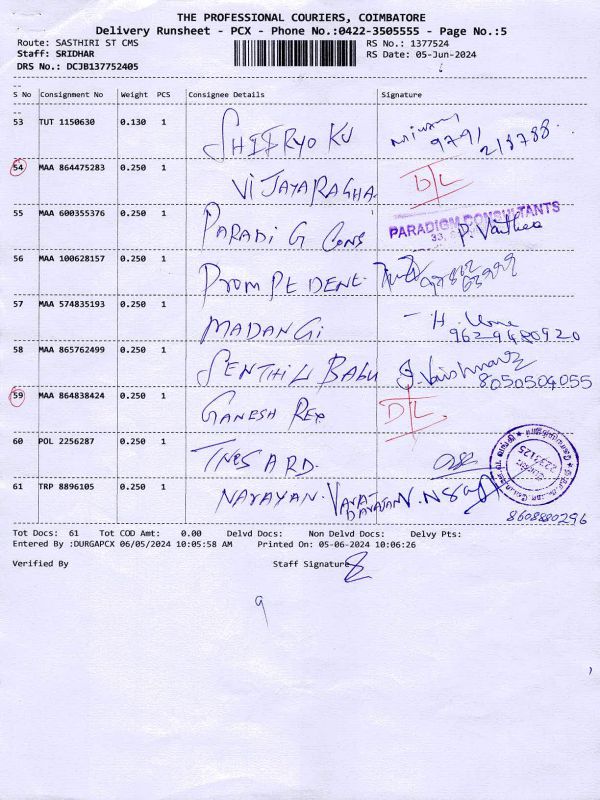 THE PROFESSIONAL COURIERS, COIMBATORE
Delivery Runsheet - PCX - Phone No.:0422-3505555 - Page No.:5
Route: SASTHIRI ST CMS RS No.: 1377524
Staff: SRIDHAR RS Date: 05-Jun-2024
DRS No.: DCJB137752405
S No Consignment No Weight PCS Consignee Details Signature
53 TUT 1150630 0.130 1 9791
213788
54 MAA 864475283 0.250 1 VIJAYARAGHA. D/L
55 MAA 600355376 0.250 1 PARADIG CONS PARADIGM CONSULTANTS
56 MAA 100628157 0.250 1 PROMPT DENT
57 MAA 574835193 0.250 1 MADANGI
9629480920
58 MAA 865762499 0.250 1 SENTHIL BABU
8050504055
59 MAA 864838424 0.250 1 GANESH REX D/L
60 POL 2256287 0.250 1
2233125
61 TRP 8896105 0.250 1 NARAYAN.
8608880296
Tot Docs: 61 Tot COD Amt: 0.00 Delvd Docs: Non Delvd Docs: Delvy Pts:
Entered By :DURGAPCX 06/05/2024 10:05:58 AM Printed On: 05-06-2024 10:06:26
Verified By Staff Signature
9